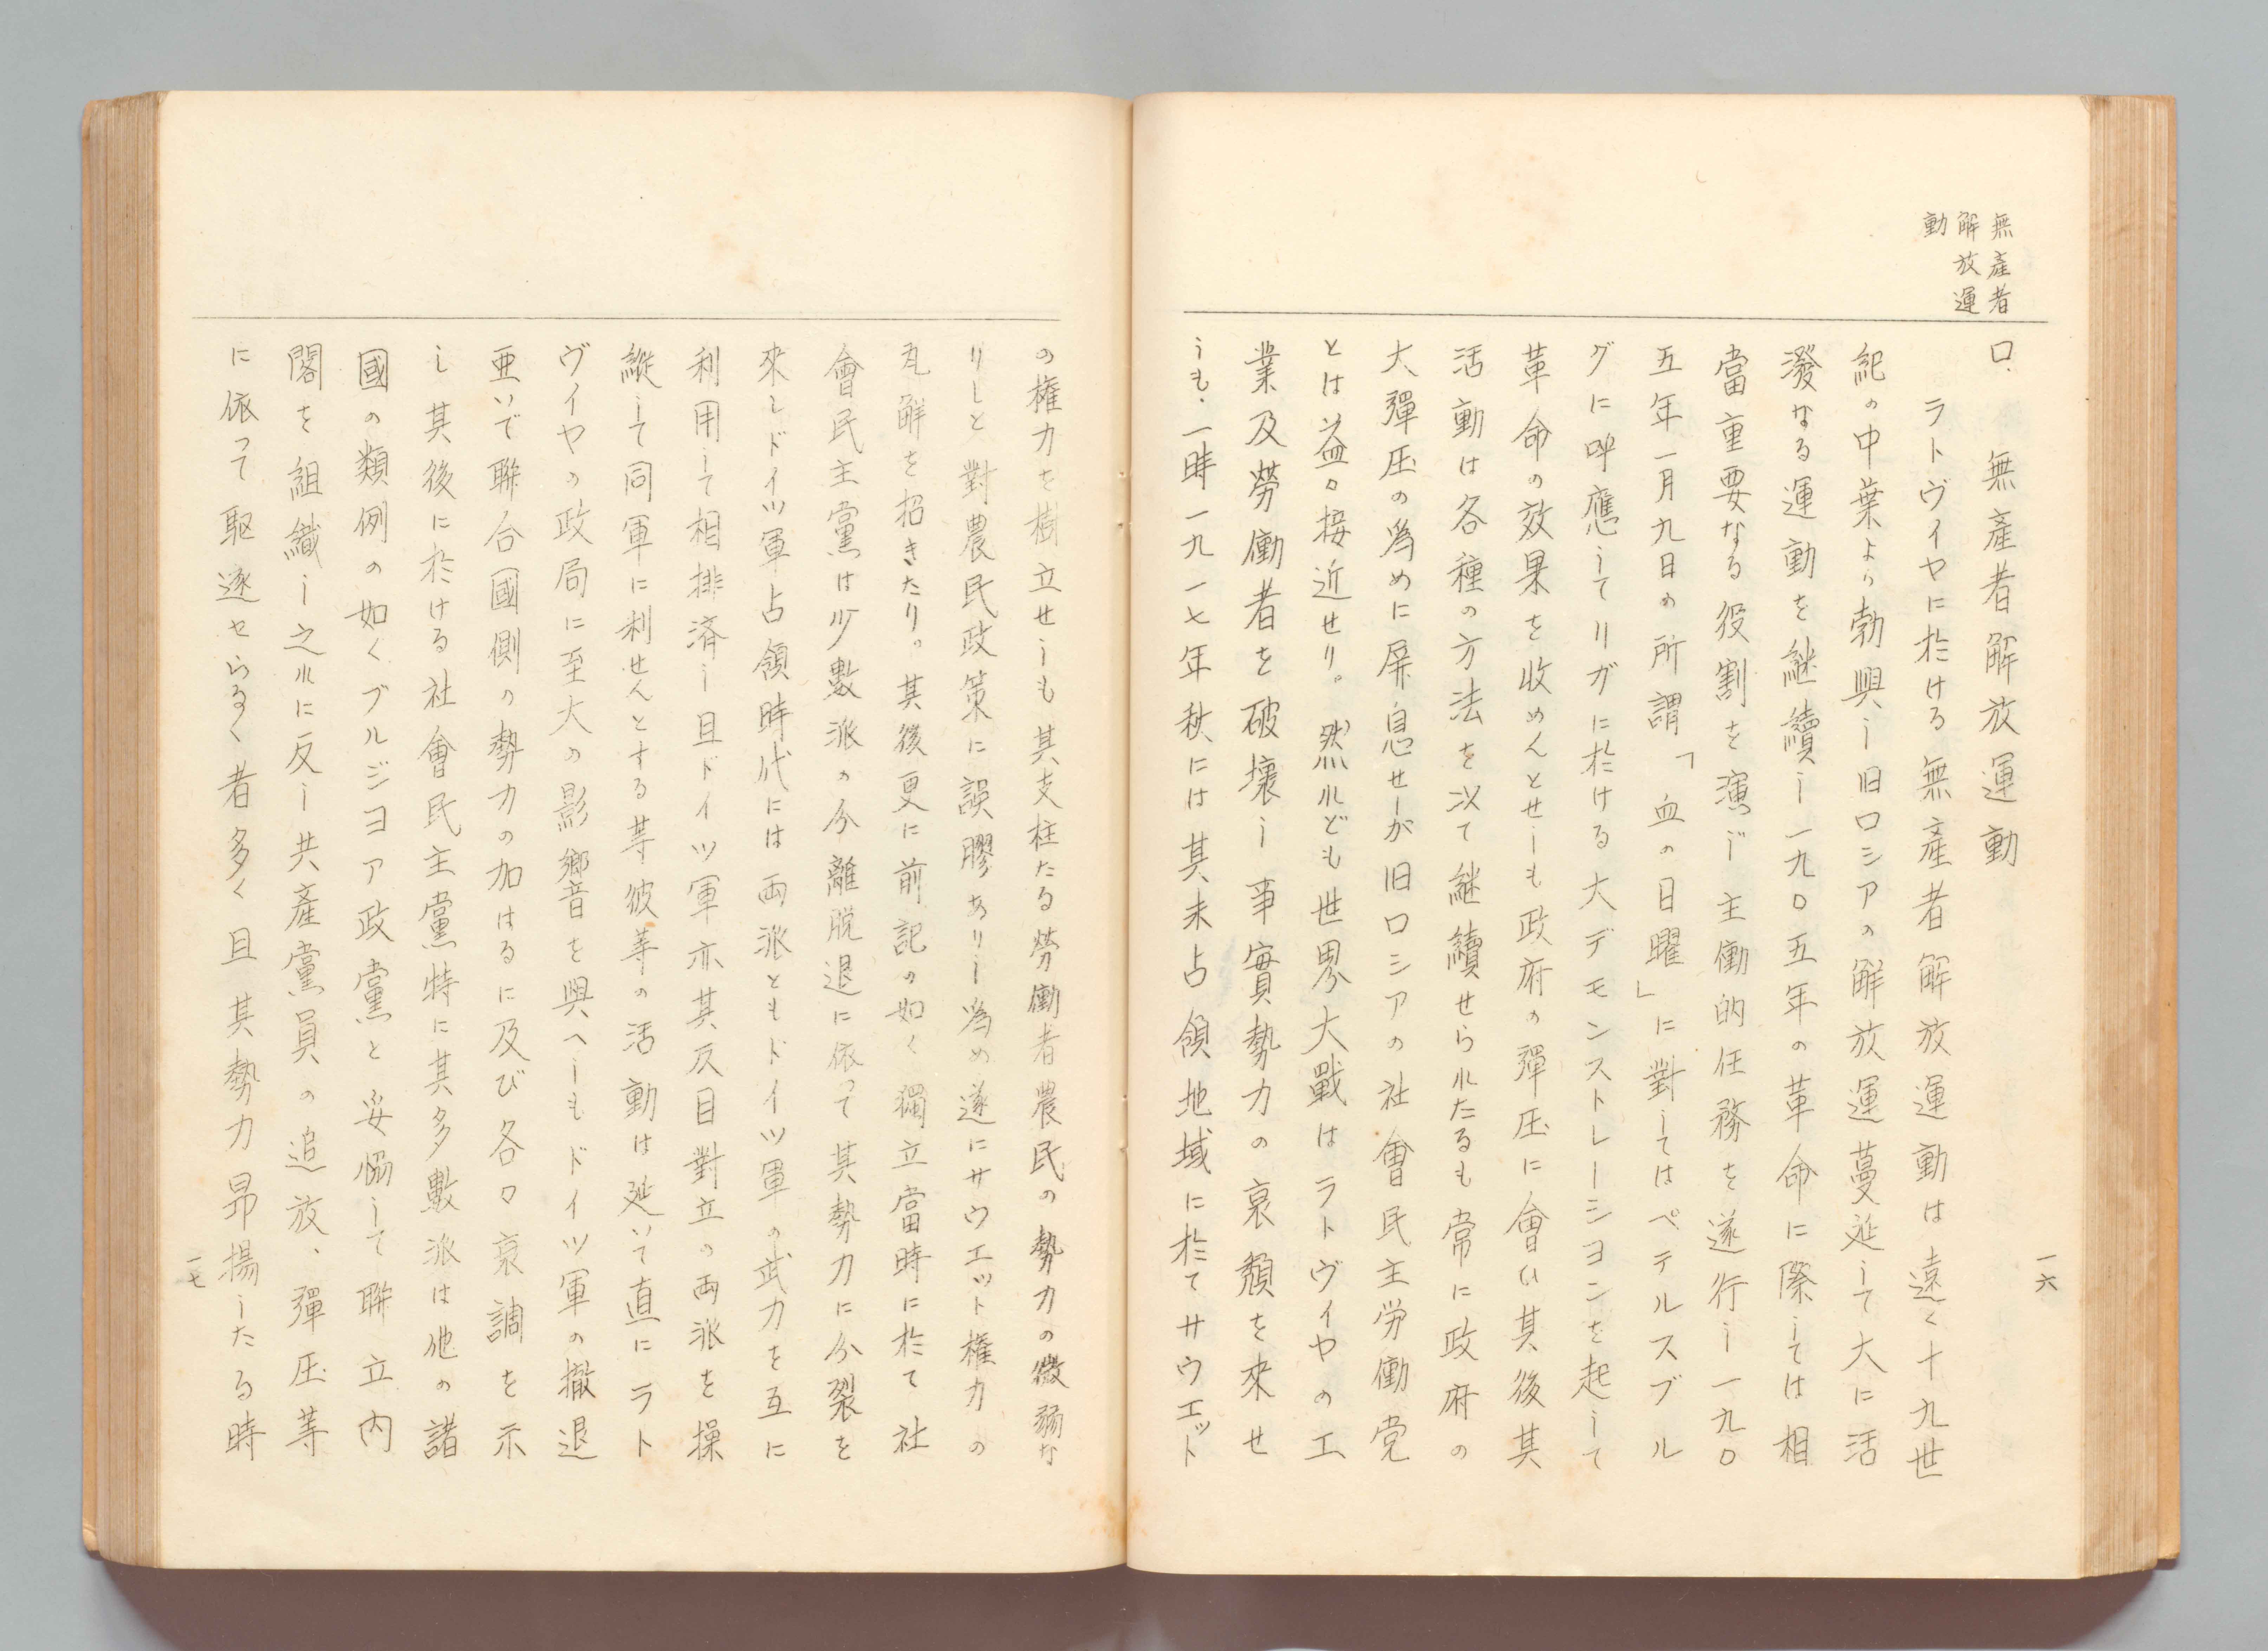 無產者
解放運
動
一六
ロ.無產者解放運動
ラトヴイヤに於ける無產者解放運動は遠く十九世
紀の中葉より勃興し旧ロシアの解放運蔓延して大に活
潑なる運動を継續し一九〇五年の革命に際しては相
當重要なる役割を演じ主働的任務を遂行し一九〇
五年一月九日の所謂「血の日曜」に對してはペテルスブル
グに呼應してリガに於ける大デモンストレーシヨンを起して
革命の效果を收めんとせしも政府の彈圧に會ひ其後其
活動は各種の方法を以て継續せられたるも常に政府の
大彈圧の爲めに屏息せしが旧ロシアの社會民主労働党
とは益々接近せり。然れども世界大戰はラトヴイヤの工
業及勞働者を破壞し事實勢力の衰頽を來せ
しも.一時一九一七年秋には其未占領地域に於てサウエット
の権力を樹立せしも其支柱たる勞働者農民の勢力の微弱な
りしと對農民政策に誤膠ありし爲め遂にサウエット権力の
瓦解を招きたり。其後更に前記の如く獨立當時に於て社
會民主黨は少數派の分離脱退に依って其勢力に分裂を
來しドイツ軍占領時代には両派ともドイツ軍の武力を互に
利用して相排済し且ドイツ軍亦其反目對立の両派を操
縱して同軍に利せんとする等彼等の活動は延いて直にラト
ヴイヤの政局に至大の影響を與へしもドイツ軍の撤退
亜いで聯合國側の勢力の加はるに及び各々衰調を示
し其後に於ける社會民主黨特に其多數派は他の諸
國の類例の如くブルジヨア政黨と妥協して聯立內
閣を組織し之れに反し共產黨員の追放、彈圧等
に依って駆逐せらるゝ者多く且其勢力昻揚したる時
一七